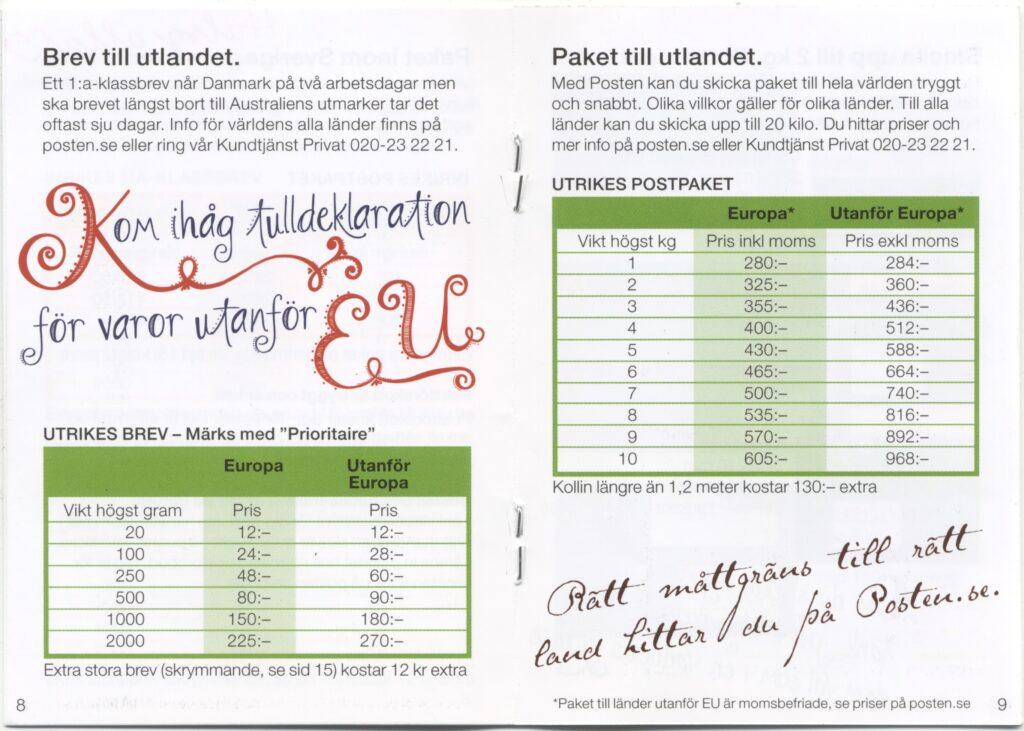 Brev till utlandet.
Ett 1:a-klassbrev når Danmark på två arbetsdagar men
ska brevet längst bort till Australiens utmarker tar det
oftast sju dagar. Info för världens alla länder finns på
posten.se eller ring vår Kundtjänst Privat 020-23 22 21.
Kom ihåg tulldeklaration
för varor utanför EU
UTRIKES BREV – Märks med ”Prioritaire”
Europa Utanför
Europa
Vikt högst gram Pris Pris
20 12:– 12:–
100 24:– 28:–
250 48:– 60:–
500 80:– 90:–
1000 150:– 180:–
2000 225:– 270:–
Extra stora brev (skrymmande, se sid 15) kostar 12 kr extra
8
Paket till utlandet.
Med Posten kan du skicka paket till hela världen tryggt
och snabbt. Olika villkor gäller för olika länder. Till alla
länder kan du skicka upp till 20 kilo. Du hittar priser och
mer info på posten.se eller Kundtjänst Privat 020-23 22 21.
UTRIKES POSTPAKET
Europa* Utanför Europa*
Vikt högst kg Pris inkl moms Pris exkl moms
1 280:– 284:–
2 325:– 360:–
3 355:– 436:–
4 400:– 512:–
5 430:– 588:–
6 465:– 664:–
7 500:– 740:–
8 535:– 816:–
9 570:– 892:–
10 605:– 968:–
Kollin längre än 1,2 meter kostar 130:– extra
Rätt måttgräns till rätt
land hittar du på Posten.se.
*Paket till länder utanför EU är momsbefriade, se priser på posten.se
9